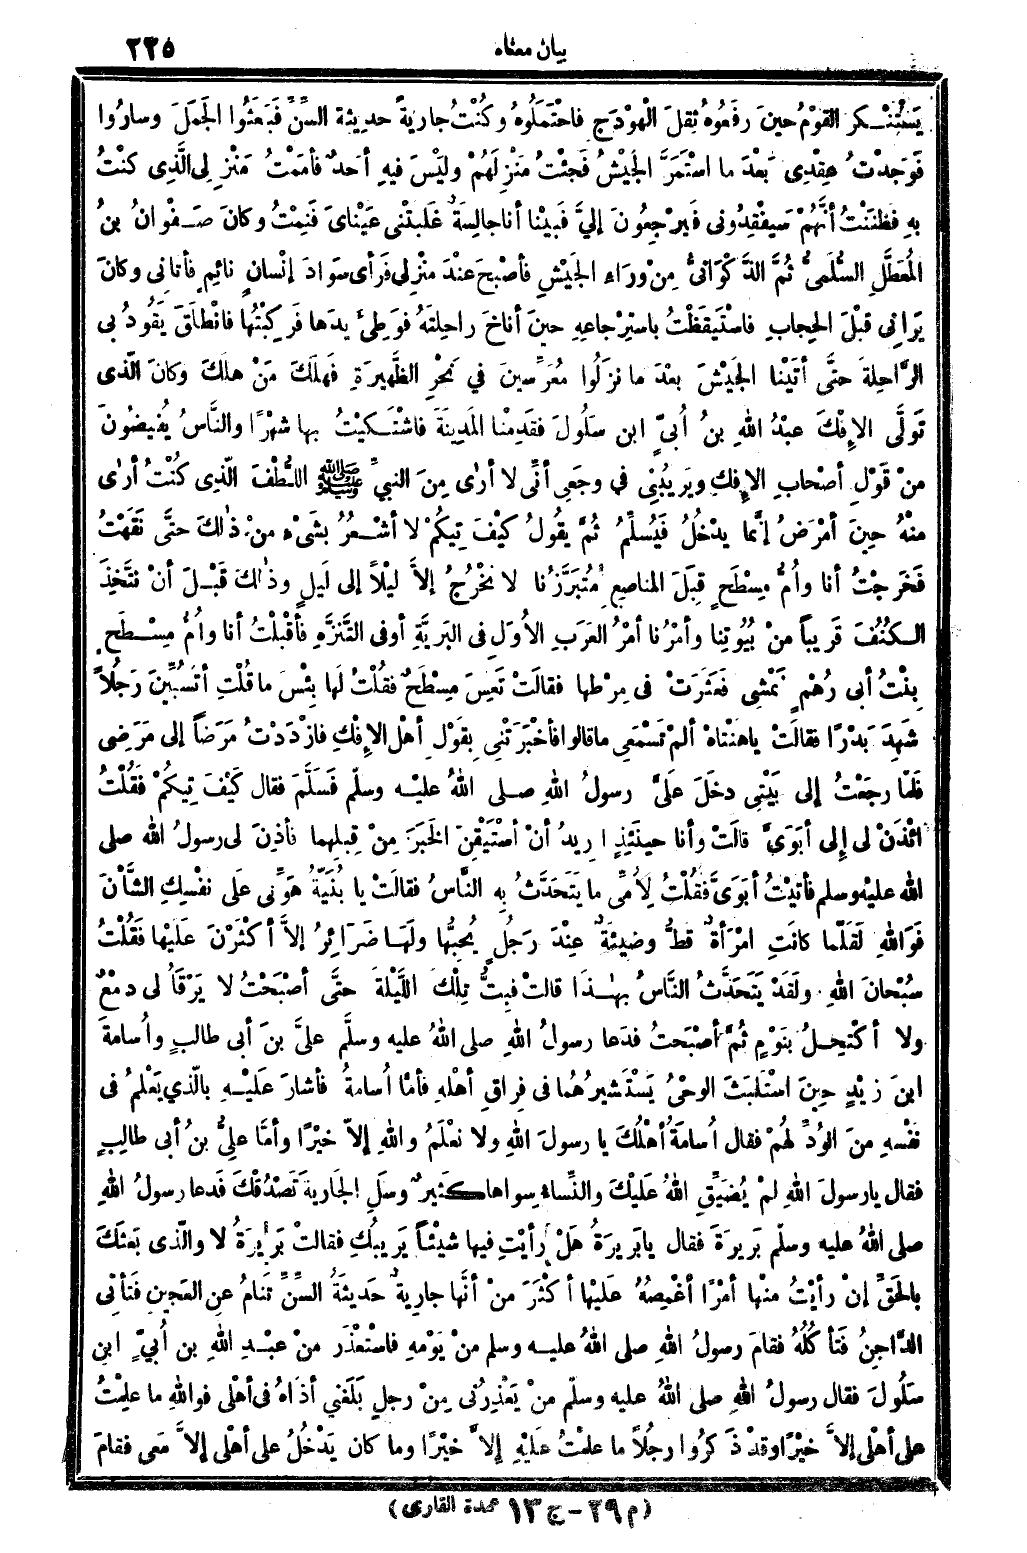 بيان معناه ٢٢٥
يَسْتَنْكِرِ القَوْمُ حينَ رفَعُوهُ ثِقَلَ الهْوْدَجِ فاحْتَمَلُوهُ وكُنْتُ جارِيةً حديثةَ السِّنِّ فَبَعَثُوا الجَمَلَ وسارُوا
فَوَجَدْتُ عِقْدِى بَعْدَ ما اسْتَمَرَّ الجَيْشُ فَجِئْتُ مَنْزِلَهُمْ ولَيْسَ فيهِ أحَدٌ فأمَمْتُ مَنْزِلِى الَّذِى كنْتُ
بهِ فظَنَنْتُ أنَّهُمْ سَيفْقِدُونى فَيرْجِعُونَ إليَّ فَبيْنا أنا جالِسَةٌ غَلبَتْنى عَيْناىَ فَنِمْتُ وكانَ صَفْوانُ بنُ
المُعَطَّلِ السُّلَمىُّ ثُمَّ الذَّكْوَانىُّ مِنْ ورَاءِ الجَيْشِ فأصْبحَ عنْدَ منْزِلى فَرأى سَوادَ إنْسانٍ نائِمٍ فأتانى وكانَ
يَرَانِى قبْلَ الحِجابِ فاسْتَيقَظْتُ باستِرْجاعِهِ حينَ أناخَ راحِلتَهُ فوَطِئَ يدَها فَرَكِبْتُها فانْطلَقَ يَقُودُ بى
الرَّاحِلةَ حتَّى أتَيْنا الجَيْشَ بعْدَ ما نزَلُوا مُعَرِّسينَ في نَحْرِ الظَّهيرَةِ فَهلَكَ مَنْ هلكَ وكانَ الَّذى
تَولَّى الإفْكَ عبْدُ اللهِ بنُ أُبيٍّ ابن سَلُولَ فقَدِمْنا المَدِينَةَ فاشْتَكَيْتُ بها شهْرًا والنَّاسُ يُفيضُونَ
منْ قَوْلِ أصْحابِ الإفكِ ويَرِيبُنِى في وجَعِى أنِّى لا أرَى مِنَ النبيِّ ﷺ اللُّطْفَ الَّذِى كُنْتُ أرَى
منْهُ حِينَ أمْرَضُ إنَّما يدْخُلُ فَيُسلِّمُ ثُمَّ يقُولُ كيْفَ تِيكُمْ لا أشْعُرُ بشَىْءٍ منْ ذٰلكَ حتَّى نقَهْتُ
فَخَرجْتُ أنا وأُمُّ مِسْطَحٍ قِبَلَ المناصِعِ مُتَبرَّزُنا لا نَخْرُجُ إلاَّ ليْلاً إلى لَيلٍ وذٰلكَ قَبْلَ أنْ نتَّخِذَ
الكُنُفَ قَرِيباً منْ بُيُوتِنا وأمْرُنا أمْرُ العَرَبِ الأُوَلِ فى البَرِيَّةِ أوفى التَّنَزُّهِ فأقْبَلْتُ أنا وأُمُّ مِسْطَحٍ
بِنْتُ أبى رُهْمٍ نَمْشِى فَعَثرَتْ فى مِرْطِها فقالَتْ تَعِسَ مِسْطَحٌ فقُلْتُ لَها بِئْسَ ما قُلْتِ أتَسُبِّينَ رَجُلاً
شَهِدَ بَدْرًا فقالَتْ ياهنْتاهْ ألمْ تَسْمَعِى ماقالوا فأخْبَرَتْنِى بقَوْلِ أهْلِ الإفْكِ فازْدَدْتُ مَرَضاً إلى مَرَضِى
فلَمّا رجَعْتُ إلى بَيْتِى دخَلَ علَىَّ رسولُ اللهِ صلى اللهُ عليْه وسلّم فَسَلَّمَ فقال كَيْفَ تِيكُمْ فَقُلْتُ
ائْذَنْ لى إلى أبَوَىَّ قالَتْ وأنا حينَئِذٍ اُرِيدُ أنْ أسْتَيْقِنَ الخَبَرَ مِنْ قِبلِهِما فأذِنَ لى رسولُ الله صلى
الله عليْه وسلم فأتيْتُ أبَوَىَّ فقُلْتُ لِأُمِّى ما يَتَحَدَّثُ بِهِ النَّاسُ فقالَتْ يا بُنَيَّةُ هَوِّنى علَى نفْسِكِ الشَّأْنَ
فَوَاللهِ لَقَلَّما كانَتِ امْرَأةٌ قطُّ وضِيئةٌ عِنْدَ رَجلٍ يُحِبُّها ولَهَا ضَرَائِرُ إلاَّ أكْثَرْنَ علَيْها فقُلْتُ
سُبْحانَ اللهِ ولَقَدْ يَتَحَدَّثُ النَّاسُ بِهٰذَا قالتْ فبِتُّ تِلْكَ اللَّيْلَةَ حتَّى أصْبَحْتُ لا يَرْقَأُ لى دمْعٌ
ولا أكْتَحِلُ بنَوْمٍ ثُمَّ أصْبَحتُ فدَعا رسولُ اللهِ صلى اللهُ عليه وسلَّم علىَّ بنَ أبى طالبٍ وأُسامةَ
ابنَ زيْدٍ حِينَ اسْتَلبَثَ الوحْىُ يَسْتَشيرُهُما فى فِراقِ أهْلهِ فأمّا أُسامةُ فأشارَ عَلَيْهِ بالَّذي يَعْلمُ فى
نفْسهِ منَ الوُدِّ لَهمْ فقال أُسامَةُ أهْلُكَ يا رسولَ اللهِ ولا نعْلَمُ واللهِ إلاّ خيْرًا وأمَّا علىُّ بنُ أبى طالِبٍ
فقال يارسولَ اللهِ لمْ يُضَيِّقِ اللهُ عَليْكَ والنِّساءُ سِواها كَثيرٌ وسَلِ الجَارِيةَ تَصْدُقْكَ فَدعا رسولُ اللهِ
صلى اللهُ عليه وسلّم بَرِيرَةَ فقال يابَرِيرَةُ هَلْ رَأيْتِ فيها شيْئاً يَرِيبُكِ فقالتْ بَرِيرَةُ لا والّذى بَعثَكَ
بالحَقِّ إنْ رأيْتُ منْها أمْرًا أغْمِصُهُ عليْها أكْثَرَ منْ أنَّها جارِيةٌ حَدِيثَةُ السِّنِّ تنَامُ عنِ العَجِينِ فَتأتِى
الدَّاجِنُ فَتَأكُلُهُ فقامَ رسولُ اللهِ صلى اللهُ عليْه وسلم منْ يَوْمِهِ فاسْتَعْذَرَ منْ عبْدِ اللهِ بن أُبيٍّ ابنِ
سَلُولَ فقال رسولُ اللهِ صلى اللهُ عليه وسلّم منْ يَعْذِرُنى مِنْ رجلٍ بَلَغَنِي أذَاهُ فى أهْلى فوَاللهِ ما علِمْتُ
على أهْلى إلاَّ خيْرًا وقدْ ذكَرُوا رجُلاً ما علمْتُ عَليْهِ إلاَّ خيْرًا وما كان يَدْخُلُ على أهْلى إلاَّ مَعِى فقامَ
(م ٢٩ - ج ١٣ عمدة القارى)